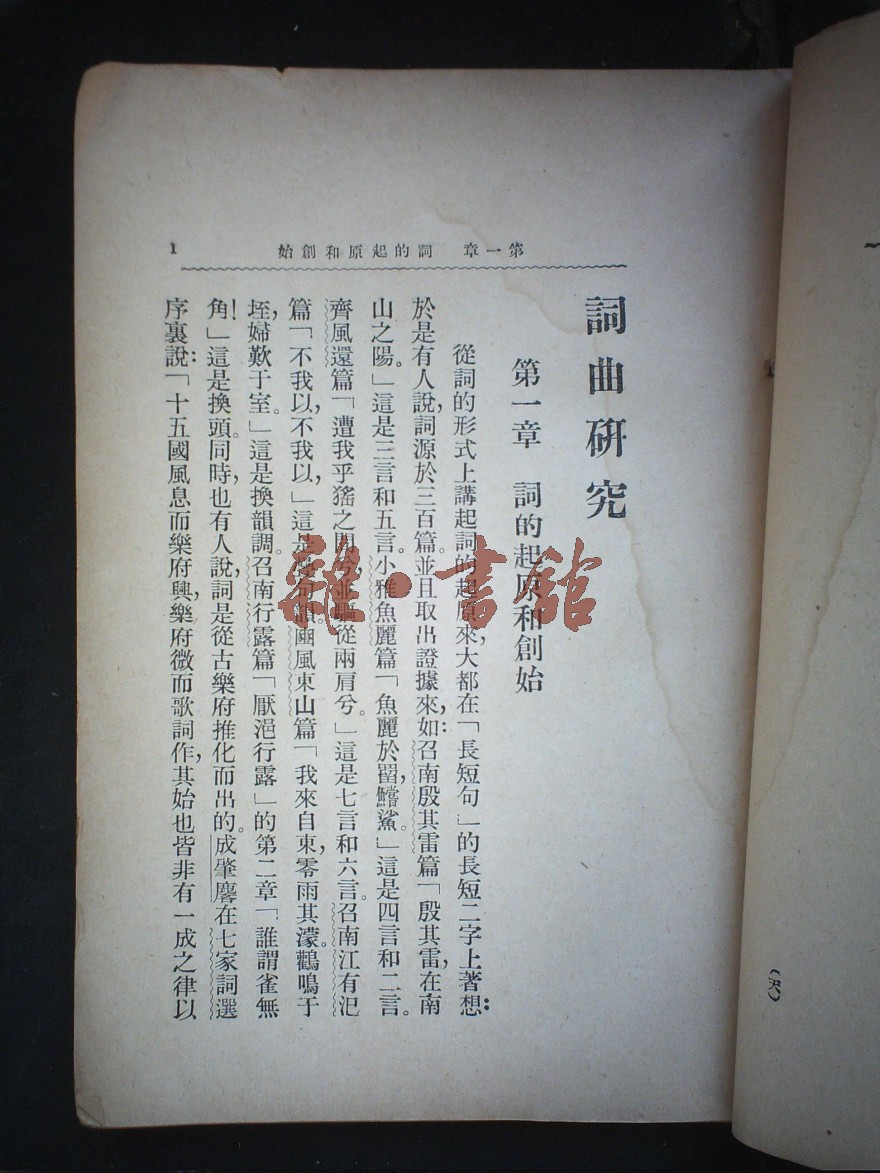 第一章　詞的起原和創始
1
詞曲研究
第一章　詞的起原和創始
從詞的形式上講起詞的起原來，大都在「長短句」的長短二字上著想：
於是有人說，詞源於三百篇。並且取出證據來，如：召南殷其雷篇「殷其雷，在南
山之陽。」這是三言和五言。小雅魚麗篇「魚麗於罶，鱨鯊。」這是四言和二言。
齊風還篇「遭我乎猺之間兮，並驅從兩肩兮。」這是七言和六言。召南江有汜
篇「不我以，不我以，」這是句韻。豳風東山篇「我來自東，零雨其濛，鸛鳴于
垤，婦歎于室。」這是換韻調。召南行露篇「厭浥行露」的第二章「誰謂雀無
角！」這是換頭。同時，也有人說，詞是從古樂府推化而出的。成肇麐在七家詞選
序裏說：「十五國風息而樂府興，樂府微而歌詞作，其始也皆非有一成之律以
雜·書館